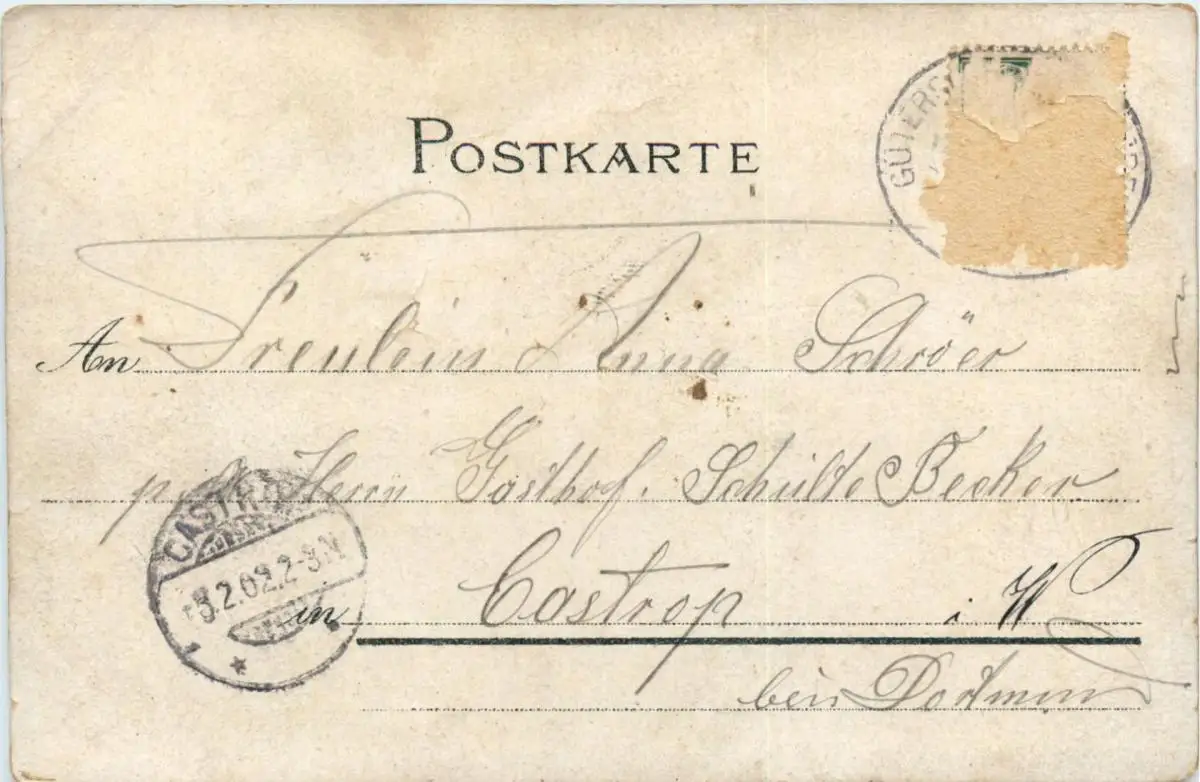 POSTKARTE
GÜTERS
An Freulein Anna Schröer
Herrn Gasthof. Schulte Becker
in Castrop i. W
bein Dortmun
CASTR
5.2.02.2-3N